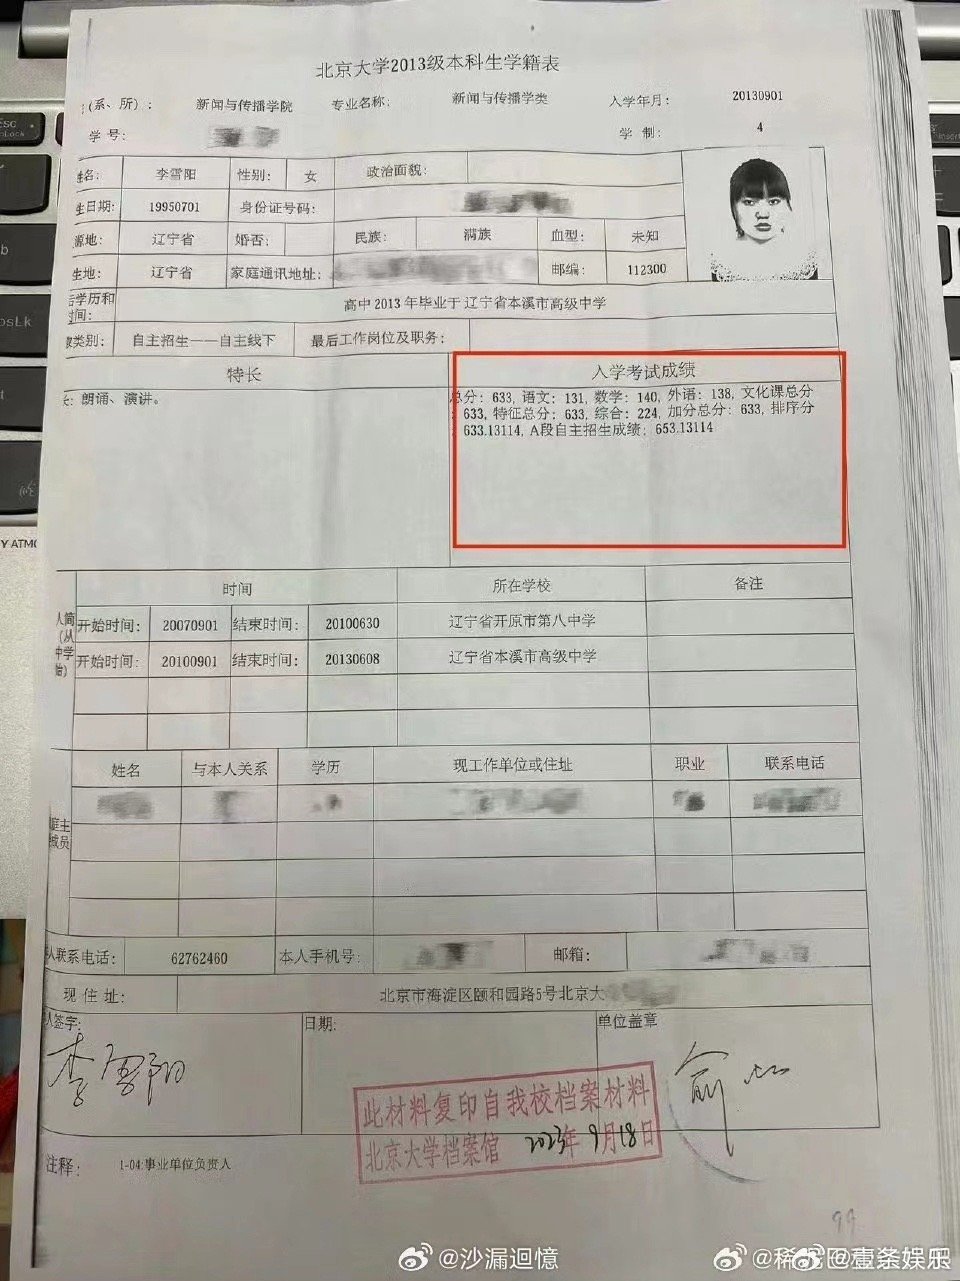 北京大学2013级本科生学籍表
(系、所): 新闻与传播学院 专业名称: 新闻与传播学类 入学年月: 20130901
学号: 学制: 4
姓名: 李雪阳 性别: 女 政治面貌:
生日期: 19950701 身份证号码:
源地: 辽宁省 婚否: 民族: 满族 血型: 未知
生地: 辽宁省 家庭通讯地址: 邮编: 112300
学历和时间: 高中2013年毕业于辽宁省本溪市高级中学
类别: 自主招生——自主线下 最后工作岗位及职务:
特长 入学考试成绩
长: 朗诵、演讲。
总分: 633, 语文: 131, 数学: 140, 外语: 138, 文化课总分
: 633, 特征总分: 633, 综合: 224, 加分总分: 633, 排序分
: 633.13114, A段自主招生成绩: 653.13114
时间 所在学校 备注
人简(从中学始)
开始时间: 20070901 结束时间: 20100630 辽宁省开原市第八中学
开始时间: 20100901 结束时间: 20130608 辽宁省本溪市高级中学
姓名 与本人关系 学历 现工作单位或住址 职业 联系电话
庭主
成员
人联系电话: 62762460 本人手机号: 邮箱:
现住址: 北京市海淀区颐和园路5号北京大
人签字: 日期: 单位盖章
李雪阳
此材料复印自我校档案材料
北京大学档案馆 2023年9月18日
注释: 1-04:事业单位负责人
99
@沙漏迴憶
@壹条娱乐